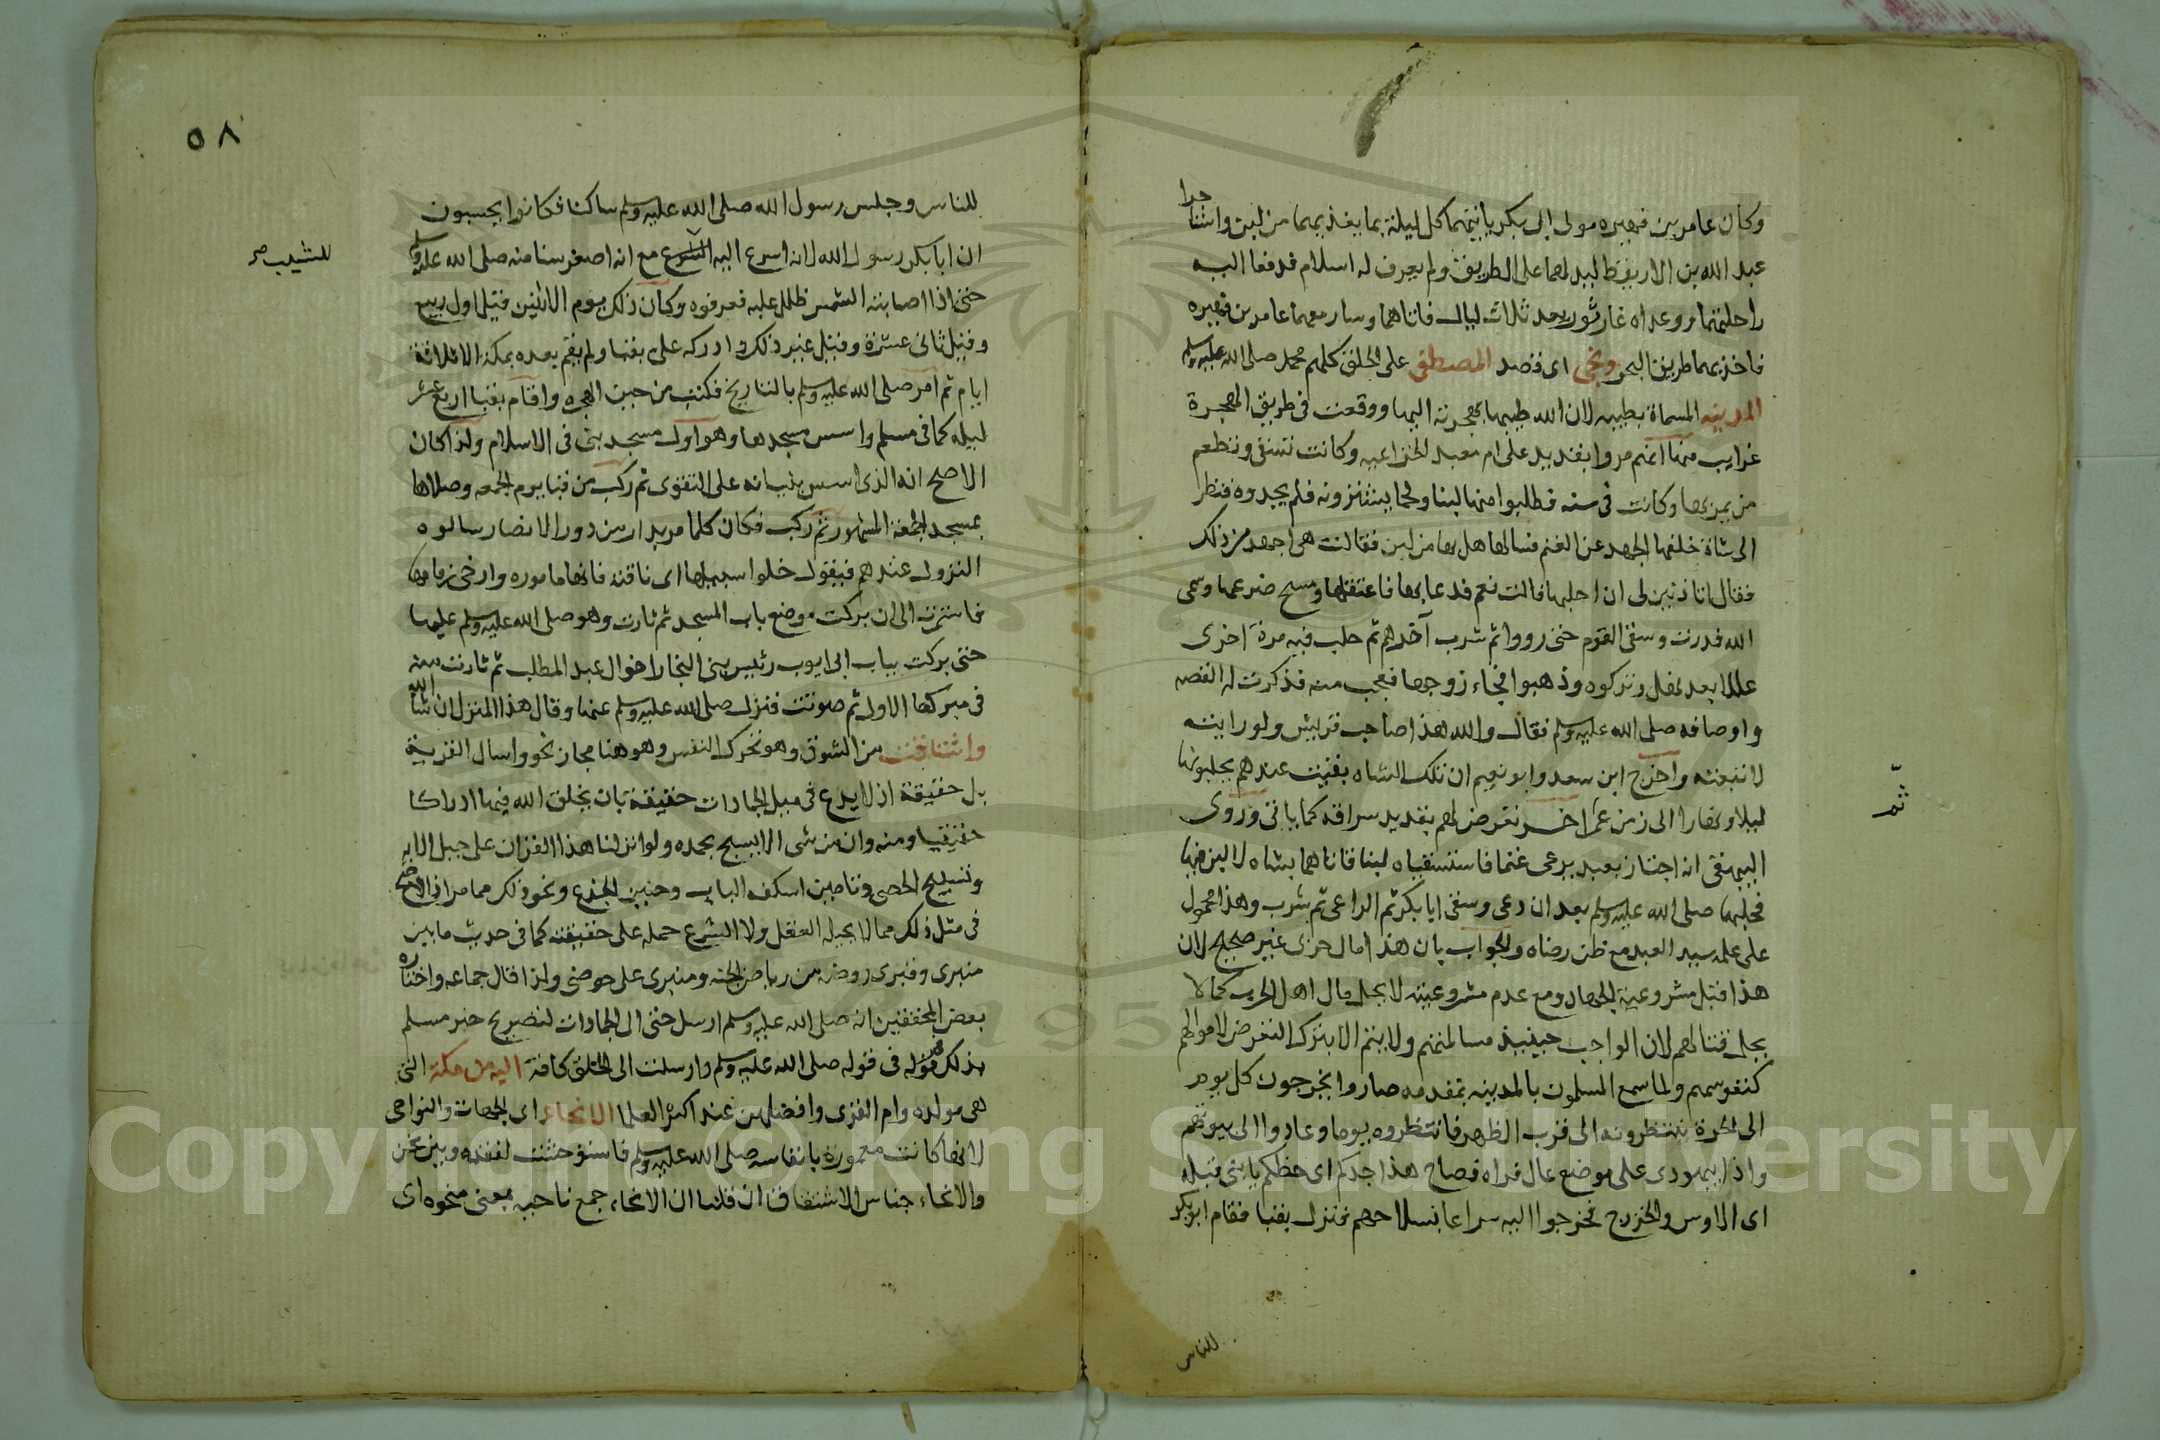 وكان عامر بن فهيره مولى ابى بكر ياتيهما كل ليلة بما يغذيهما من لبن واستاجرا
عبد الله بن الاريقط ليدلهما على الطريق ولم يعرف له اسلام فدفعا اليه
راحلتيهما وواعداه غار ثور بعد ثلاث ليال فاتاهما وسار معهما عامر بن فهيره
فاخذ بهما طريق البحر ونحى اى قصد المصطفى على الخلق كلهم محمد صلى الله عليه وسلم
المدينه المسماة بطيبه لان الله طيبها بهجرته اليها ووقعت فى طريق الهجرة
غرايب منها انهم مروا بقديد على ام معبد الخزاعيه وكانت تسقى وتطعم
من يمر بها وكانت فى سنه فطلبوا منها لبنا ولحما يشترونه فلم يجدوه فنظر
الى شاة خلفها الجهد عن الغنم فسالها هل بها من لبن فقالت هى اجهد من ذلك
فقال اتاذنين لى ان احلبها قالت نعم فدعا بها فاعتقلها ومسح ضرعها وسمى
الله فدرت وسقى القوم حتى رووا ثم شرب آخرهم ثم حلب فيه مرة اخرى
عللا بعد نهل وتركوه وذهبوا فجاء زوجها فعجب منه فذكرت له القصه
واوصافه صلى الله عليه وسلم فقال والله هذا صاحب قريش ولو رايته
لاتبعته واخرج ابن سعد وابو نعيم ان تلك الشاه بقيت عندهم يحلبونها
ثم
ليلا ونهارا الى زمن عمر اخر تعرض لهم بقديد سراقه كما ياتى وروى
البيهقى انه اجتاز بعبد يرعى غنما فاستسقياه لبنا فاتاهما بشاه لا لبن فيها
فحلبها صلى الله عليه وسلم بعد ان دعى وسقى ابا بكر ثم الراعى ثم شرب وهذا محمول
على علمه سيد العبد مع ظن رضاه والجواب بان هذا مال حربى غير صحيح لان
هذا قبل مشروعية الجهاد ومع عدم مشروعيته لا يحل مال اهل الحرب كما لا
يحل قتالهم لان الواجب حينيذ مسالمتهم ولا يتم الا بترك التعرض لاموالهم
كنفوسهم ولما سمع المسلمون بالمدينه بمقدمه صاروا يخرجون كل يوم
الى الحرة ينتظرونه الى قرب الظهر فانتظروه يوما وعادوا الى بيوتهم
واذا بيهودى على موضع عال فراه فصاح هذا جدكم اى حظكم يا بنى قيله
اى الاوس والخزرج فخرجوا اليه سراعا بسلاحهم فنزل بقبا فقام ابو بكر
للناس
٥٨
للناس وجلس رسول الله صلى الله عليه وسلم ساكتا فكانوا يحسبون
ان ابا بكر رسول الله لانه اسرع اليه مع انه اصغر سنا منه صلى الله عليه وسلم
للشيب صح
حتى اذا اصابته الشمس ظلل عليه فعرفوه وكان ذلك يوم الاثنين قيل اول ربيع
وقيل ثانى عشرة وقيل غير ذلك وادركه على بقبا ولم يقم بعده بمكة الا ثلاثة
ايام ثم امر صلى الله عليه وسلم بالتاريخ فكتب من حين الهجره واقام بقبا اربع عشر
ليله كما فى مسلم واسس مسجدها وهو اول مسجد بنى فى الاسلام ولذا كان
الاصح انه الذى اسس بنيانه على التقوى ثم ركب من قبا يوم الجمعه وصلاها
بمسجد الجمعة المشهور ثم ركب فكان كلما مر بدار من دور الانصار سالوه
النزول عندهم فيقول خلوا سبيلها اى ناقته فانها ماموره وارخى زمامها
فاستمرت الى ان بركت موضع باب المسجد ثم ثارت وهو صلى الله عليه وسلم عليها
حتى بركت بباب ابى ايوب رئيس بنى النجار اخوال عبد المطلب ثم ثارت وبركت
فى مبركها الاول ثم صوتت فنزل صلى الله عليه وسلم عنها وقال هذا المنزل ان شا الله
واشتاقت من الشوق وهو تحرك النفس وهو هنا مجاز نحو واسال القرية
بل حقيقة اذ لا يدع فى ميل الجمادات حقيقة بان يخلق الله فيها ادراكا
حقيقيا ومنه وان من شى الا يسبح بحمده ولو انزلنا هذا القران على جبل الايه
وتسبيح الحصى وتامين اسكفه الباب وحنين الجذع ونحو ذلك مما مر اذ الاصح
فى مثل ذلك مما لا يحيله العقل ولا الشرع حمله على حقيقته كما فى حديث ما بين
منبرى وقبرى روضه من رياض الجنه ومنبرى على حوضى ولذا قال جماعه واختاره
بعض المحققين انه صلى الله عليه وسلم ارسل حتى الى الجمادات لتصريح خبر مسلم
بذلك فى قوله صلى الله عليه وسلم وارسلت الى الخلق كافة اليه من مكة التى
هى مولده وام القرى وافضلهن عند اكثر العلما الانحاء اى الجهات والنواحى
لانها كانت معمورة بانفاسه صلى الله عليه وسلم فاستوحشت لفقده وبين نحن
والانحاء جناس الاشتقاق ان قلنا ان الانحاء جمع ناحيه بمعنى منحوه اى
Copyright © King Saud University